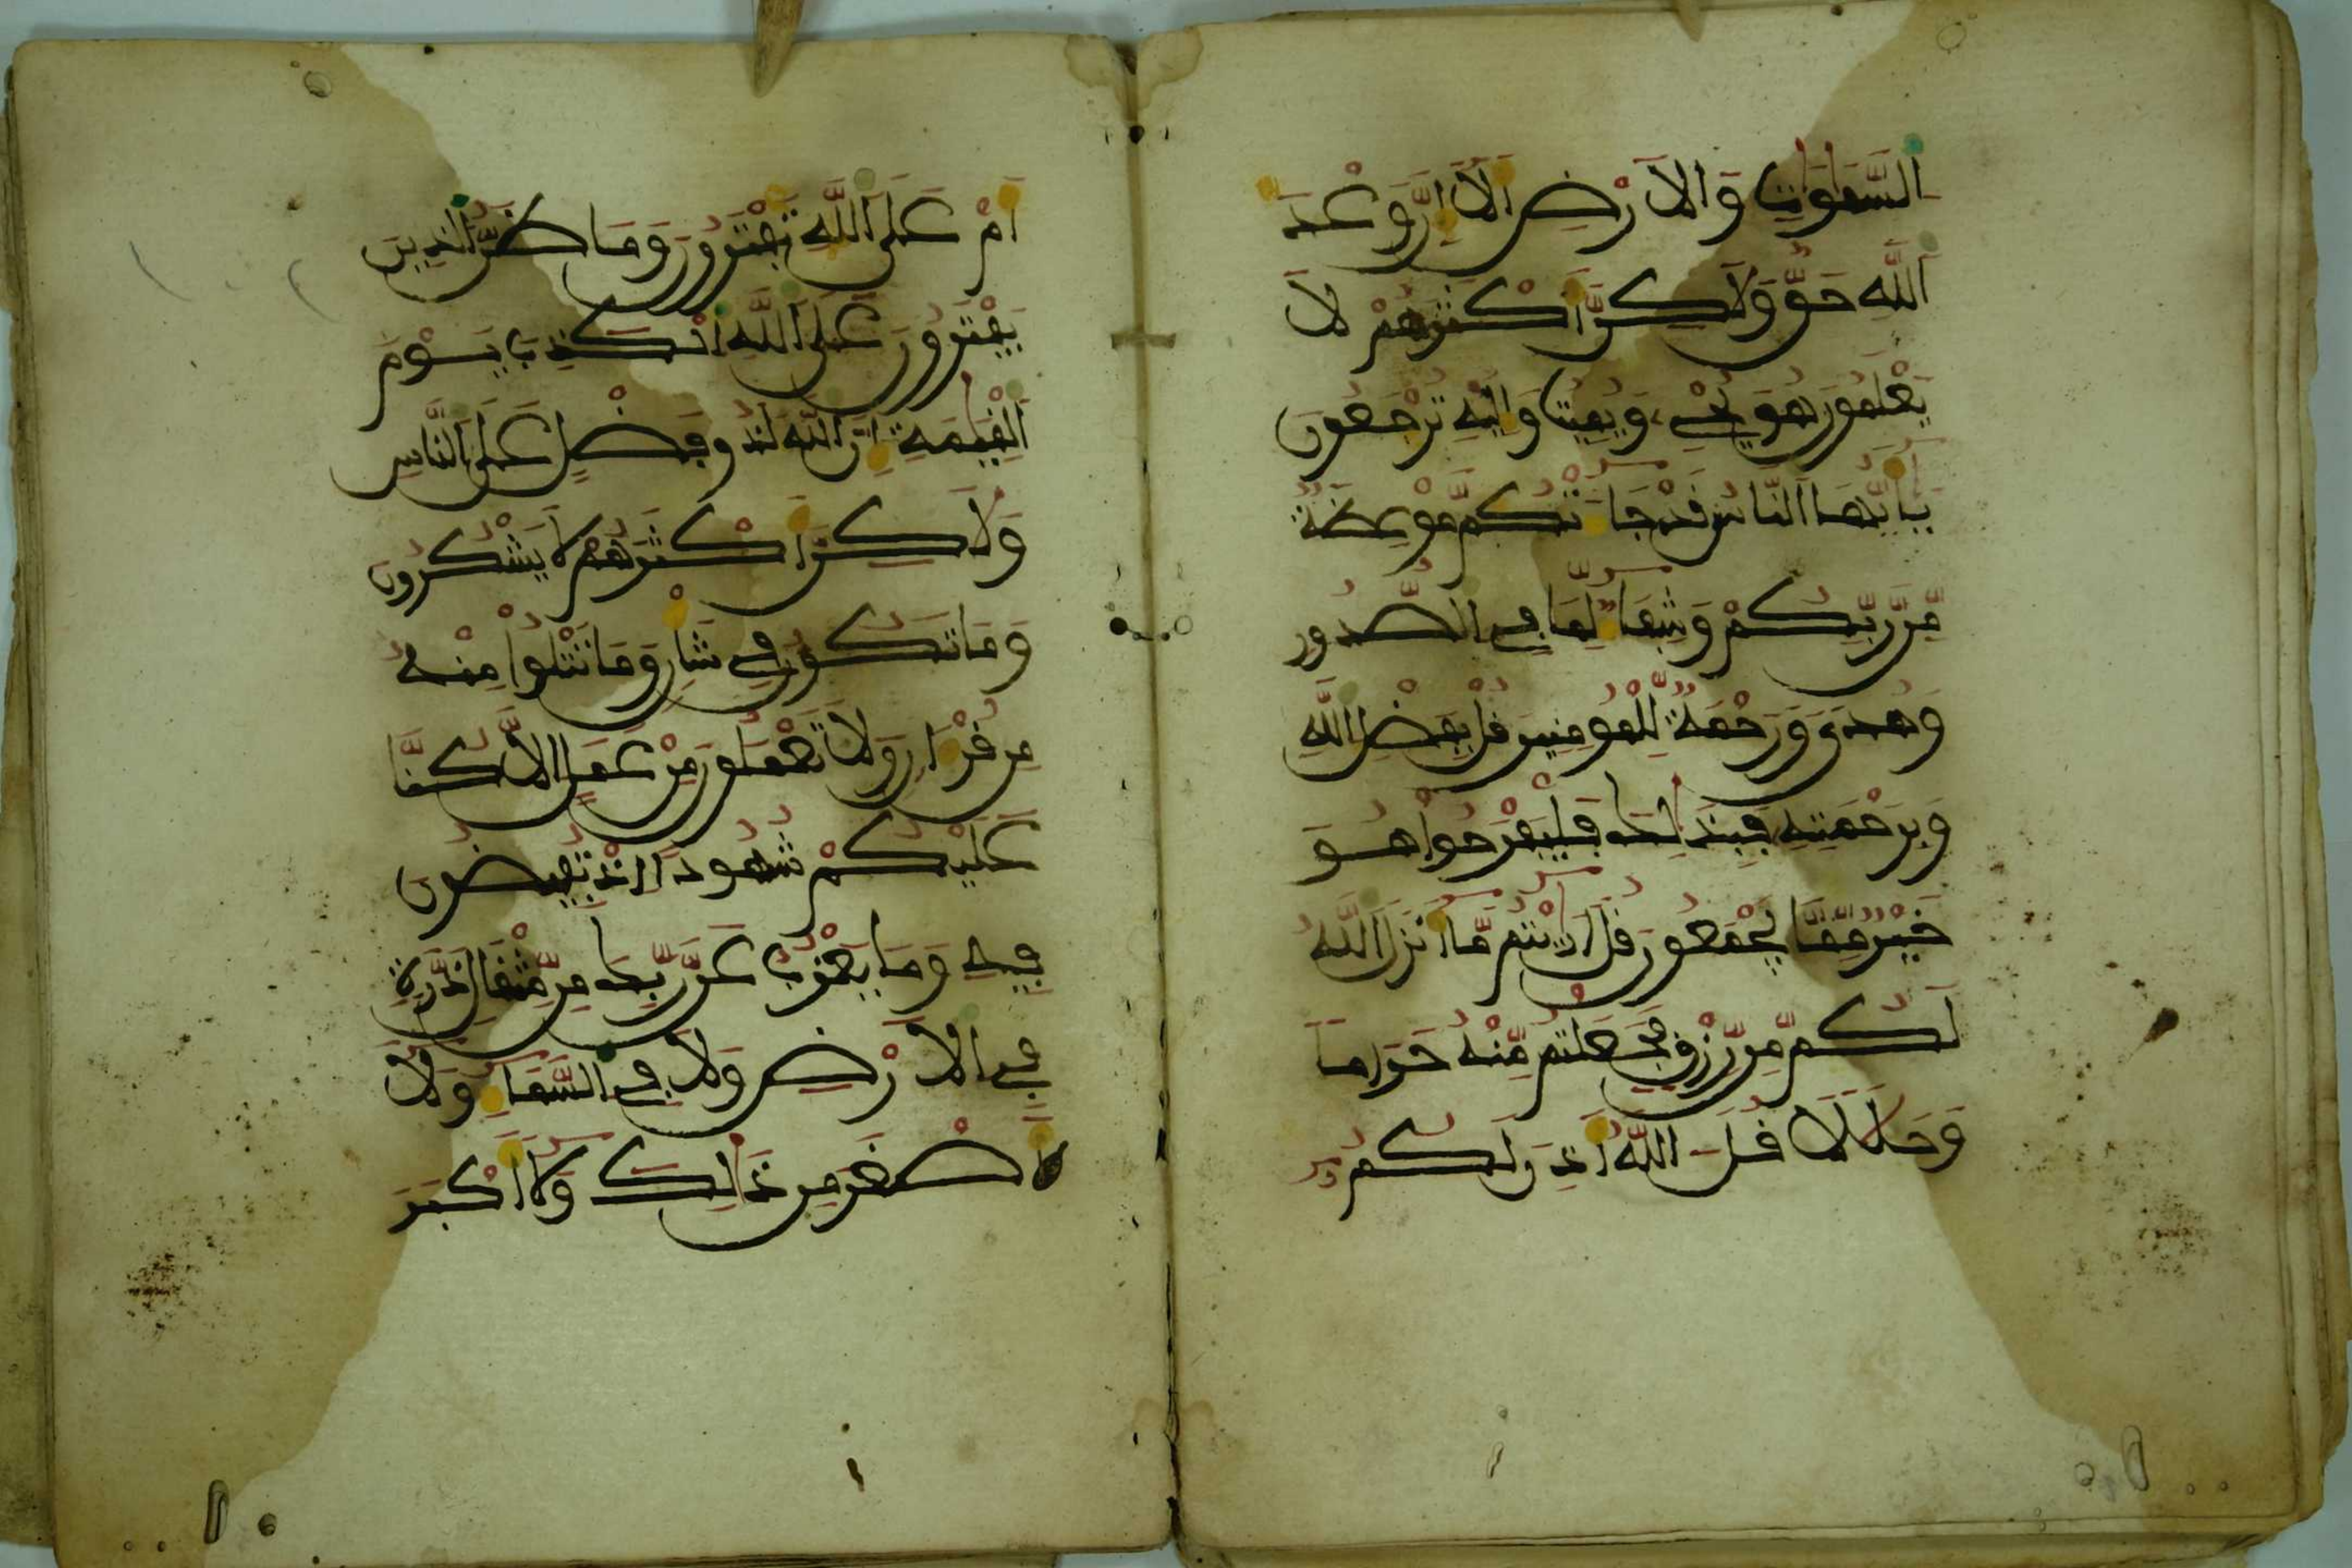 السَّمَٰوَٰتِ وَالَارْضِ أَلَا إِنَّ وَعْدَ
اَللَّهِ حَقٌّ وَلَٰكِنَّ أَكْثَرَهُمْ لَا
يَعْلَمُونَ هُوَ يُحْيِۦ وَيُمِيتُ وَإِلَيْهِ تُرْجَعُونَ
يَٰأَيُّهَا اَلنَّاسُ قَدْ جَآءَتْكُم مَّوْعِظَةٌ
مِّن رَّبِّكُمْ وَشِفَآءٌ لِّمَا فِي اِلصُّدُورِ
وَهُدىً وَرَحْمَةٌ لِّلْمُومِنِينَ قُلْ بِفَضْلِ اِللَّهِ
وَبِرَحْمَتِهِ فَبِذَٰلِكَ فَلْيَفْرَحُواْ هُوَ
خَيْرٌ مِّمَّا يَجْمَعُونَ قُلَ اَرَٰيْتُم مَّآ أَنزَلَ اَللَّهُ
لَكُم مِّن رِّزْقٍ فَجَعَلْتُم مِّنْهُ حَرَاماً
وَحَلَٰلًا قُلَ اللَّهُ أَذِنَ لَكُمُۥ
أَمْ عَلَى اَللَّهِ تَفْتَرُونَ وَمَا ظَنُّ اُلذِينَ
يَفْتَرُونَ عَلَى اَللَّهِ اِلْكَذِبَ يَوْمَ
اَلْقِيَٰمَةِ إِنَّ اَللَّهَ لَذُو فَضْلٍ عَلَى اَلنَّاسِ
وَلَٰكِنَّ أَكْثَرَهُمْ لَا يَشْكُرُونَ
وَمَا تَكُونُ فِي شَأْنٍ وَمَا تَتْلُواْ مِنْهُ
مِن قُرْءَانٍ وَلَا تَعْمَلُونَ مِنْ عَمَلٍ اِلَّا كُنَّا
عَلَيْكُمْ شُهُوداً اِذْ تُفِيضُونَ
فِيهِ وَمَا يَعْزُبُ عَن رَّبِّكَ مِن مِّثْقَالِ ذَرَّةٍ
فِي اِلَارْضِ وَلَا فِي اِلسَّمَآءِ وَلَآ
أَصْغَرَ مِن ذَٰلِكَ وَلَآ أَكْبَرَ